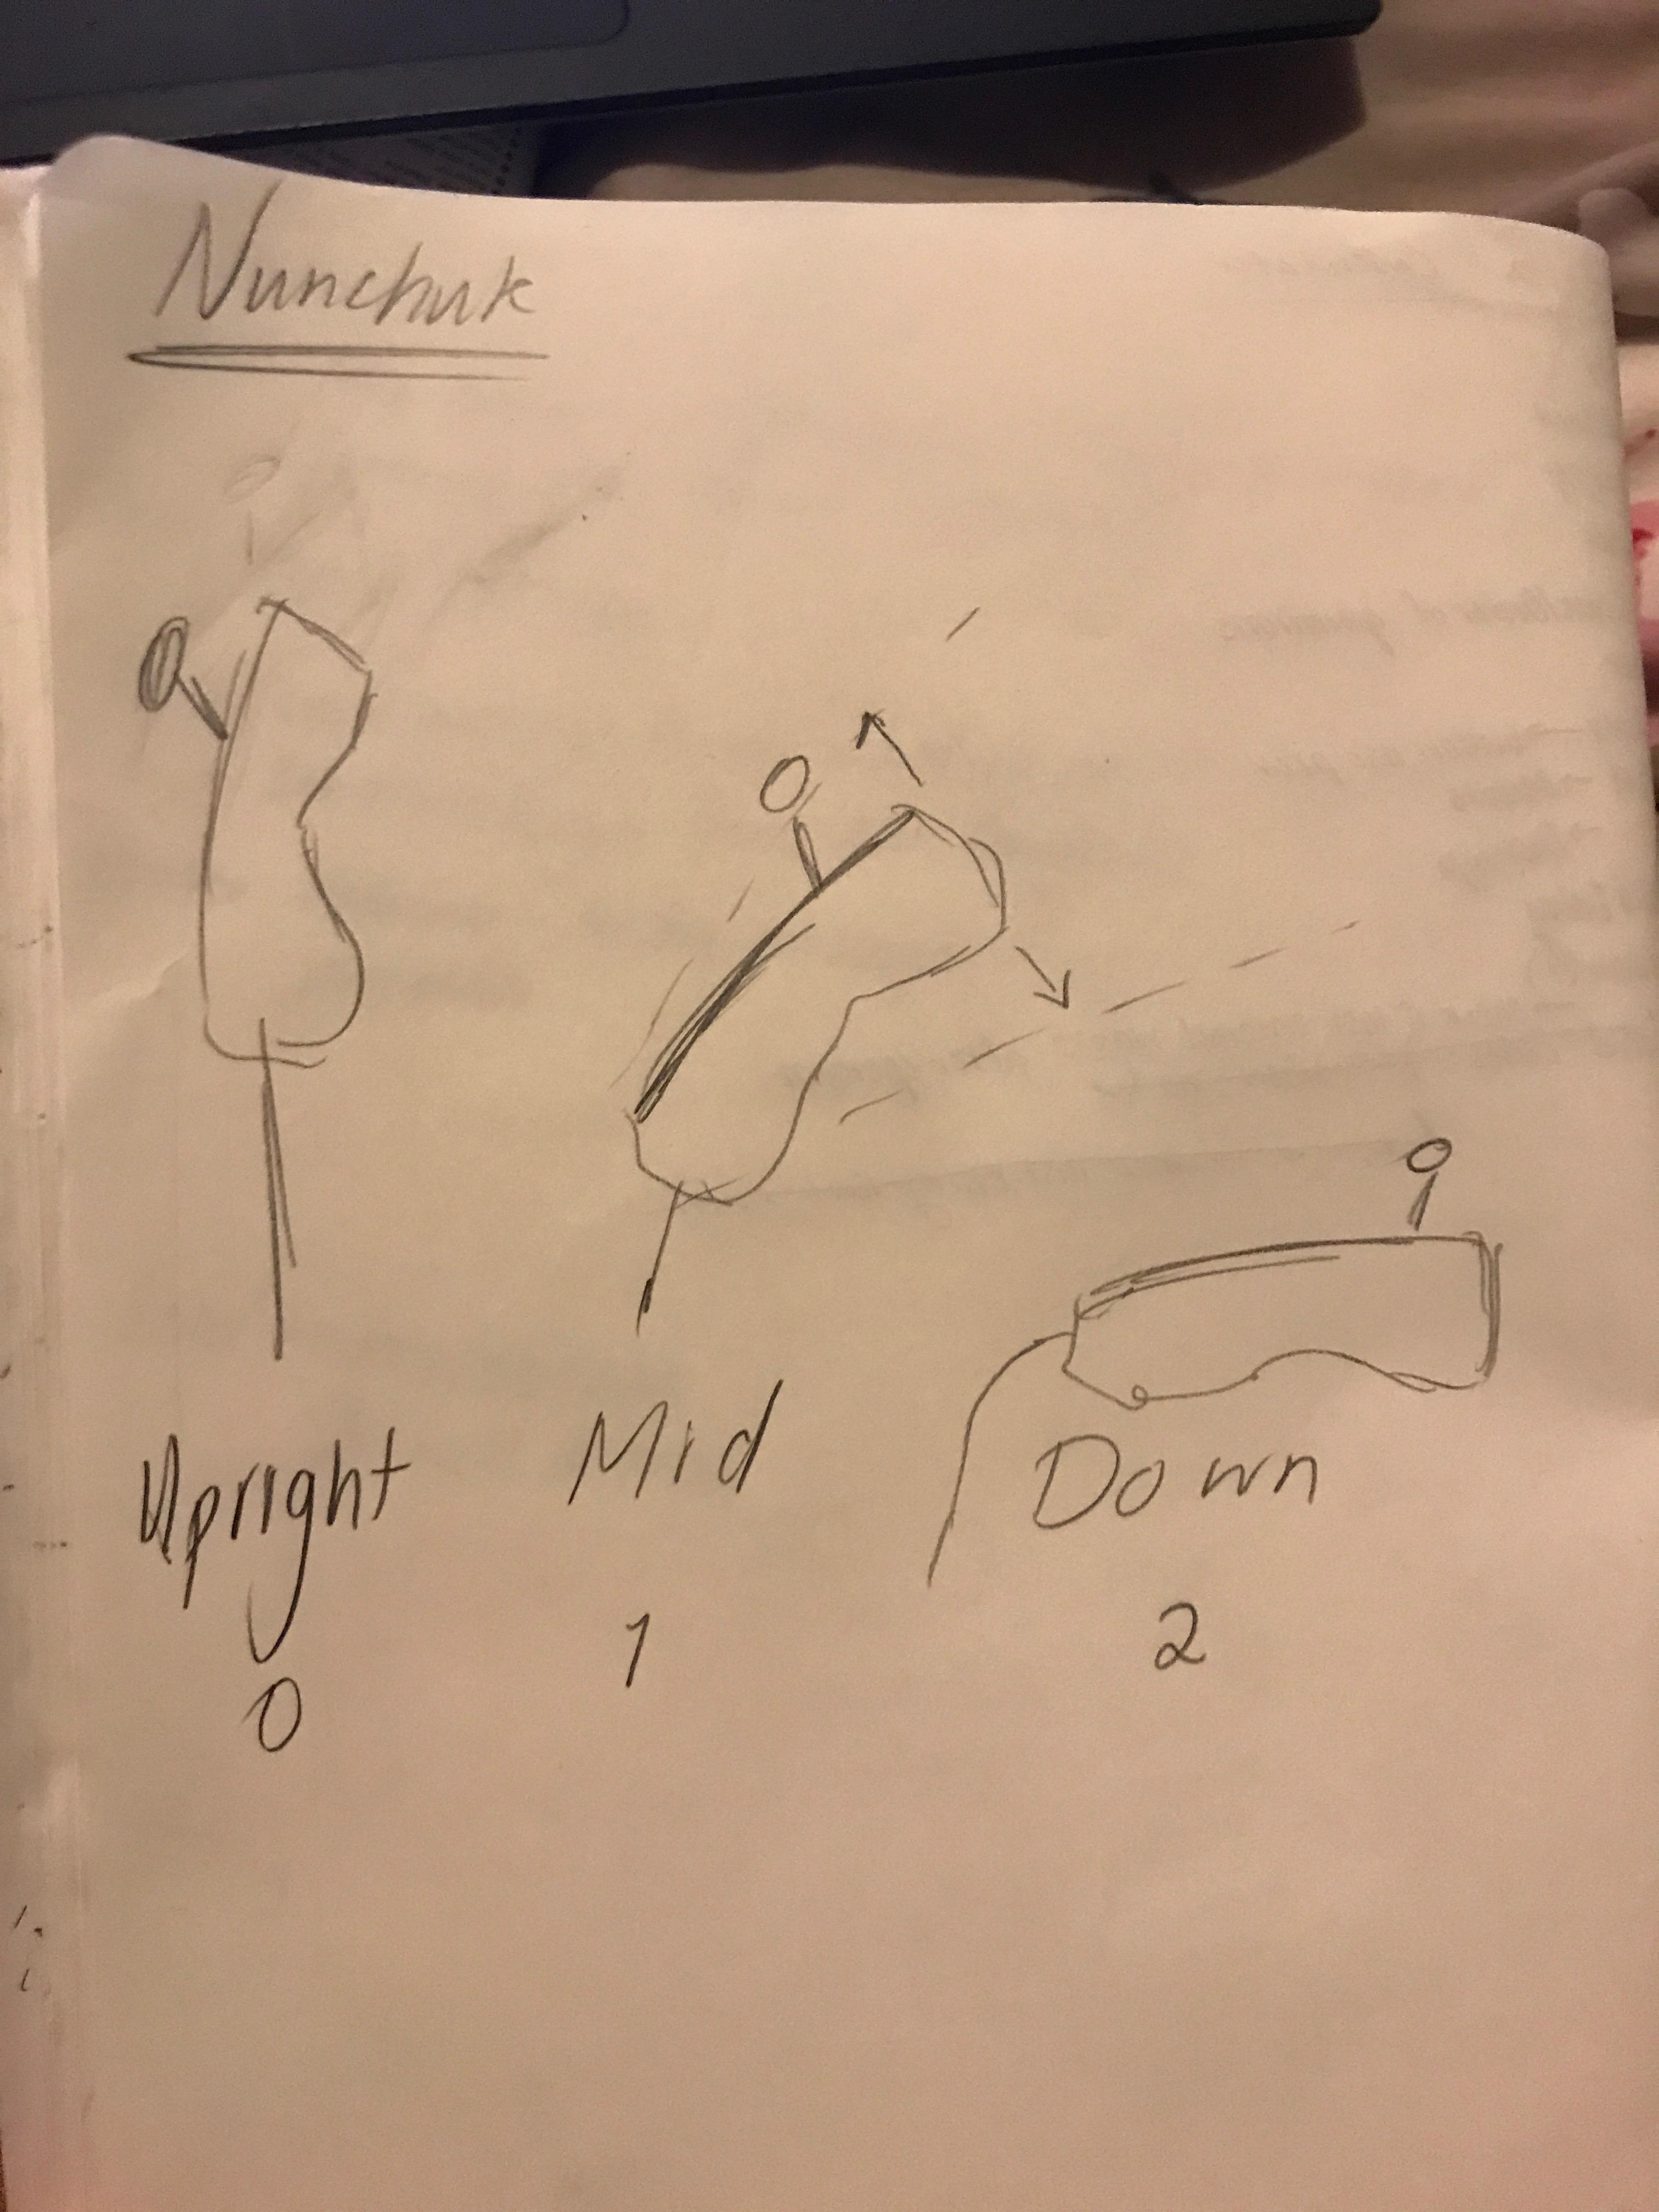 Nunchuk
Upright Mid Down
0 1 2